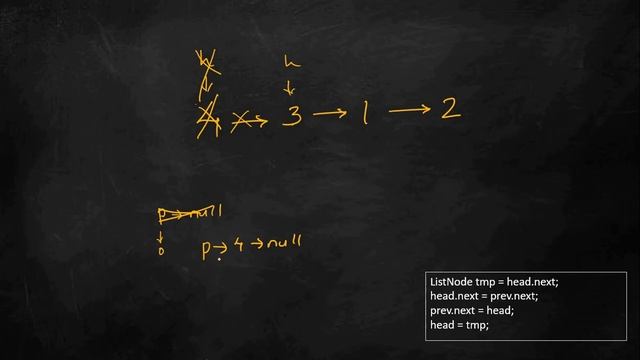 h h
4 → 3 → 1 → 2
p → null
↓
0
p → 4 → null
ListNode tmp = head.next;
head.next = prev.next;
prev.next = head;
head = tmp;